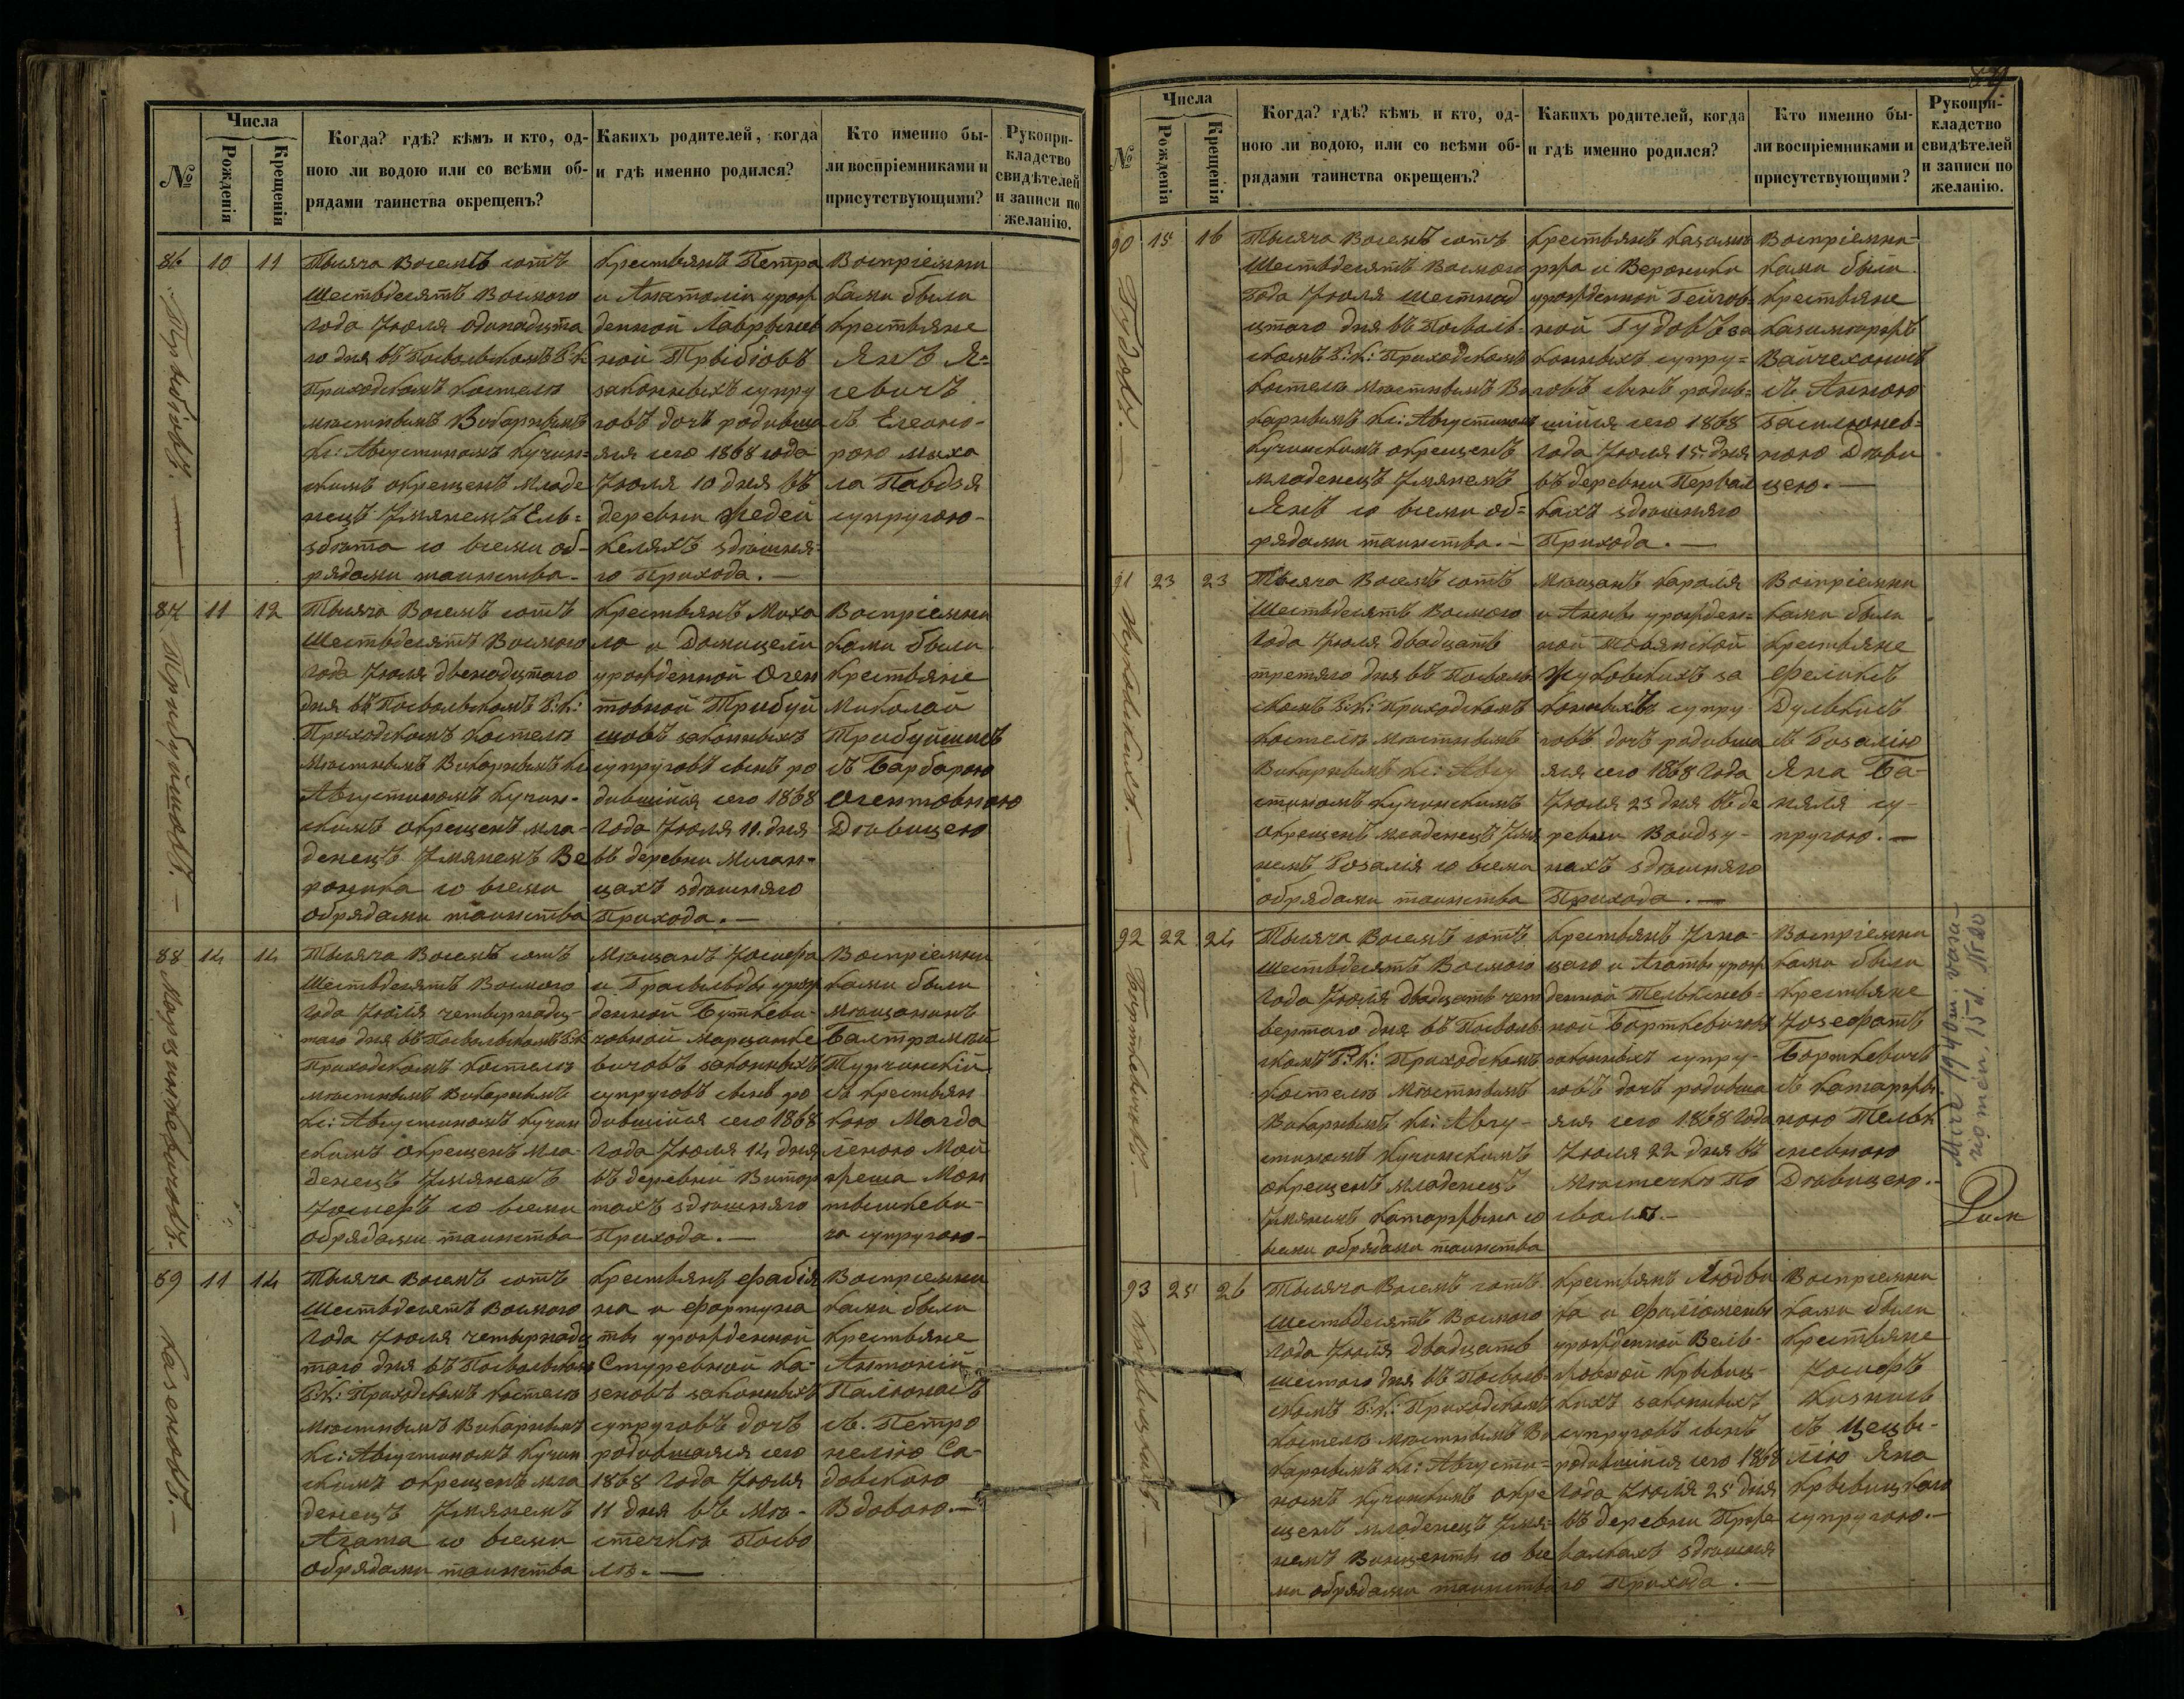 Числа
№
Рожденія
Крещенія
Когда? гдѣ? кѣмъ и кто, од-
ною ли водою или со всѣми об-
рядами таинства окрещенъ?
Какихъ родителей, когда
и гдѣ именно родился?
Кто именно бы-
ли воспріемниками и
присутствующими?
Рукопри-
кладство
свидѣтелей
и записи по
желанію.
86
10
11
Тысяча Восемь сотъ
Шестьдесятъ Восмого
года Июля одинадцата
го дня въ Посвольскомъ Р: К:
Приходскомъ Костелѣ
мѣстнымъ Викарнымъ
Кс: Августиномъ Кучин=
скимъ окрещенъ младе
нецъ Имянемъ Ель=
збѣта со всеми об-
рядами таинства-
Крестьянъ Петра
и Анатоліи урож
денной
законныхъ супру
говъ дочь родивша
яся сего 1868 года
Июля 10 дня въ
деревни Жедей
келяхъ здѣшня-
го Прихода.—
Воспріемни
ками были
Крестьяне
Янъ Я=
севичъ
съ Елеоно-
рою
супругою-
87
11
12
Тысяча Восемь сотъ
Шестьдесятъ Восмого
года Июля двенадцатаго
дня въ Посвольскомъ Р: К:
Приходскомъ Костелѣ
Мѣстнымъ Викарнымъ Кс
Августиномъ Кучин-
скимъ окрещенъ мла-
денецъ Имянемъ Ве
роника со всеми
обрядами таинства
Крестьянъ Миха
ла и Доминцели
урожденной Оген
товной Трибуй
шовъ законныхъ
супруговъ сынъ ро
дившійся сего 1868
года Июля 11. дня
въ деревни Миган-
цахъ здѣшняго
Прихода.—
Воспріемни
ками были
Крестьяне
Миколай
Трибуйшисъ
съ Барбарою
Огентовною
Дѣвицею
88
14
14
Марцинкевичовъ.
Тысяча Восемь сотъ
Шестьдесятъ Восмого
года Июля четырнадц-
таго дня въ Посвольскомъ Р: К
Приходскомъ Костелѣ
мѣстнымъ Викарнымъ
Кс: Августиномъ Кучин
скимъ окрещенъ мла-
денецъ Имянемъ
Иосифъ со всеми
обрядами таинства
Мѣщанъ Иосифа
и Грасильды урож
денной Буткеви-
човной Марцинке
вичовъ законныхъ
супруговъ сынъ ро
дившійся сего 1868
года Июля 14 дня
въ деревни Витор
тахъ здѣшняго
Прихода.—
Воспріемни
ками были
мѣщанинъ
Балтромей
Турчинскій
съ крестьян
кою Магда
леною Мой
жеша Мон
твилкеви-
ча супругою-
89
11
14
Казеновъ.
Тысяча Восемь сотъ
Шестьдесятъ Восмого
года Июля четырнадц
таго дня въ Посвольском
Р: К: Приходскомъ Костелѣ
мѣстнымъ Викарнымъ
Кс: Августиномъ Кучин
скимъ окрещенъ мла
денецъ Имянемъ
Агата со всеми
обрядами таинства
Крестьянъ Фабія
на и Фортуна
ты урожденной
Стуревной Ка-
зеновъ законныхъ
супруговъ дочь
родившаяся сего
1868 года Июля
11 дня въ Мѣ-
стечкѣ Посво
лѣ.—
Воспріемни
ками были
Крестьяне
Антоній
Палюнасъ
съ Петро
нелію Са-
довскою
Вдовою.—
Числа
№
Рожденія
Крещенія
Когда? гдѣ? кѣмъ и кто, од-
ною ли водою, или со всѣми об-
рядами таинства окрещенъ?
Какихъ родителей, когда
и гдѣ именно родился?
Кто именно бы-
ли воспріемниками и
присутствующими?
Рукопри-
кладство
свидѣтелей
и записи по
желанію.
90
15
16
Гудовъ.
Тысяча Восемь сотъ
Шестьдесятъ Восмого
Года Июля Шестнад
цтаго дня въ Посволь-
скомъ Р: К: Приходскомъ
Костелѣ мѣстнымъ Ви
карнымъ Кс: Августиномъ
Кучинскимъ окрещенъ
младенецъ Имянемъ
Янъ со всеми об=
рядами таинства.—
Крестьянъ Казими
ржа и Вероники
урожденной
Гудовъ за
конныхъ супру=
говъ сынъ родив=
шійся сего 1868
года Июля 15. дня
въ деревни Первал
кахъ здѣшняго
Прихода.—
Воспріемни-
ками были
Крестьяне
Казимиржъ
съ Анною
Дѣви
цею.—
91
23
23
Жуковскихъ.—
Тысяча Восемь сотъ
Шестьдесятъ Восмого
Года Июля двадцать
третяго дня въ Посволь
скомъ Р: К: Приходскомъ
Костелѣ мѣстнымъ
Викарнымъ Кс: Авгу
стиномъ Кучинскимъ
окрещенъ младенецъ Имя
немъ Розалія со всеми
обрядами таинства
Мѣщанъ Кароля
и Анны урожден=
ной Товянской
Жуковскихъ за
конныхъ супру
говъ дочь родивша
яся сего 1868 Года
Июля 23 дня въ де
ревни
нахъ здѣшняго
Прихода.—
Воспріемни
ками были
Крестьяне
Феликсъ
Дулькисъ
съ Розалію
Яна Ба-
няля су-
пругою.—
92
22
24
Борткевичовъ.
Тысяча Восемь сотъ
Шестьдесятъ Восмого
Года Июля двадцать чет
вертаго дня въ Посволь
скомъ Р: К: Приходскомъ
Костелѣ Мѣстнымъ
Викарнымъ Кс: Авгу-
стиномъ Кучинскимъ
окрещенъ младенецъ
Имянемъ Катаржина со
всеми обрядами таинства
Крестьянъ Игна-
цаго и Агаты урож
денной Телькснев-
ной Борткевичовъ
законныхъ супру-
говъ дочь родивша
яся сего 1868 года
Июля 22 дня въ
Мѣстечкѣ По
сволѣ.—
Воспріемни
ками были
Крестьяне
Иозефатъ
Борткевичъ
съ Катаржи
ною Тельк
сневною
Дѣвицею.-
Mirė 1940 m. vasa-
rio mėn. 15 d. № 20
93
25
26
Тысяча Восемь сотъ
Шестьдесятъ Восмого
года Июля двадцать
шестого дня въ Посволь
скомъ Р: К: Приходскомъ
Костелѣ мѣстнымъ Ви
карнымъ Кс: Августи=
номъ Кучинскимъ окре
щенъ младенецъ Имя=
немъ Винценты со все
ми обрядами таинства
Крестьянъ Людви
ка и Филомены
урожденной
законныхъ
супруговъ сынъ
родившійся сего 1868
года Июля 25 дня
въ деревни
здѣшня
го Прихода.—
Воспріемни
ками были
Крестьяне
Иосифъ
съ Цецы-
лію Яна
супругою.—